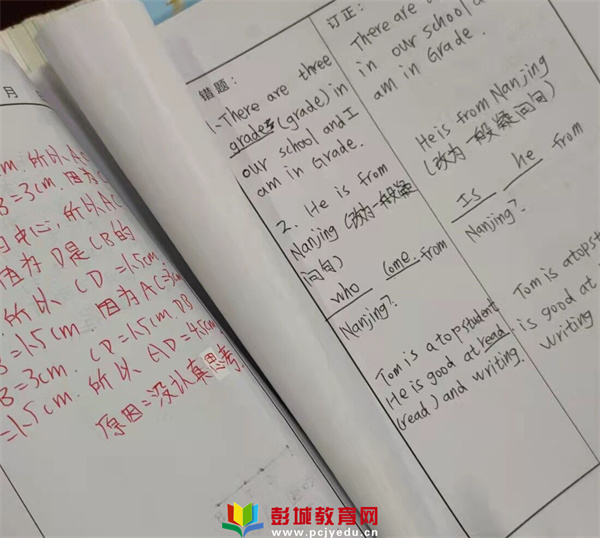 月
cm. 所以 AC
B=3cm. 因为 C
中心, 所以 AC
值为 D是CB的
所以 CD=1.5cm.
=1.5cm. 因为AC=3cm
B=3cm. CD=1.5cm. DB
=1.5cm. 所以 AD=4.5cm
原因=没认真思考.
错题：
1. There are three
grades (grade) in
our school and I
am in Grade.
2. He is from
Nanjing (改为一般疑
问句)
who come from
Nanjing?
Tom is a top student
He is good at read
(read) and writing.
订正：
There are
in our school a
am in Grade.
He is from Nanjing
(改为一般疑问句)
Is he from
Nanjing?
Tom is a top st
is good at
writing
彭城教育网
www.pcjyedu.cn